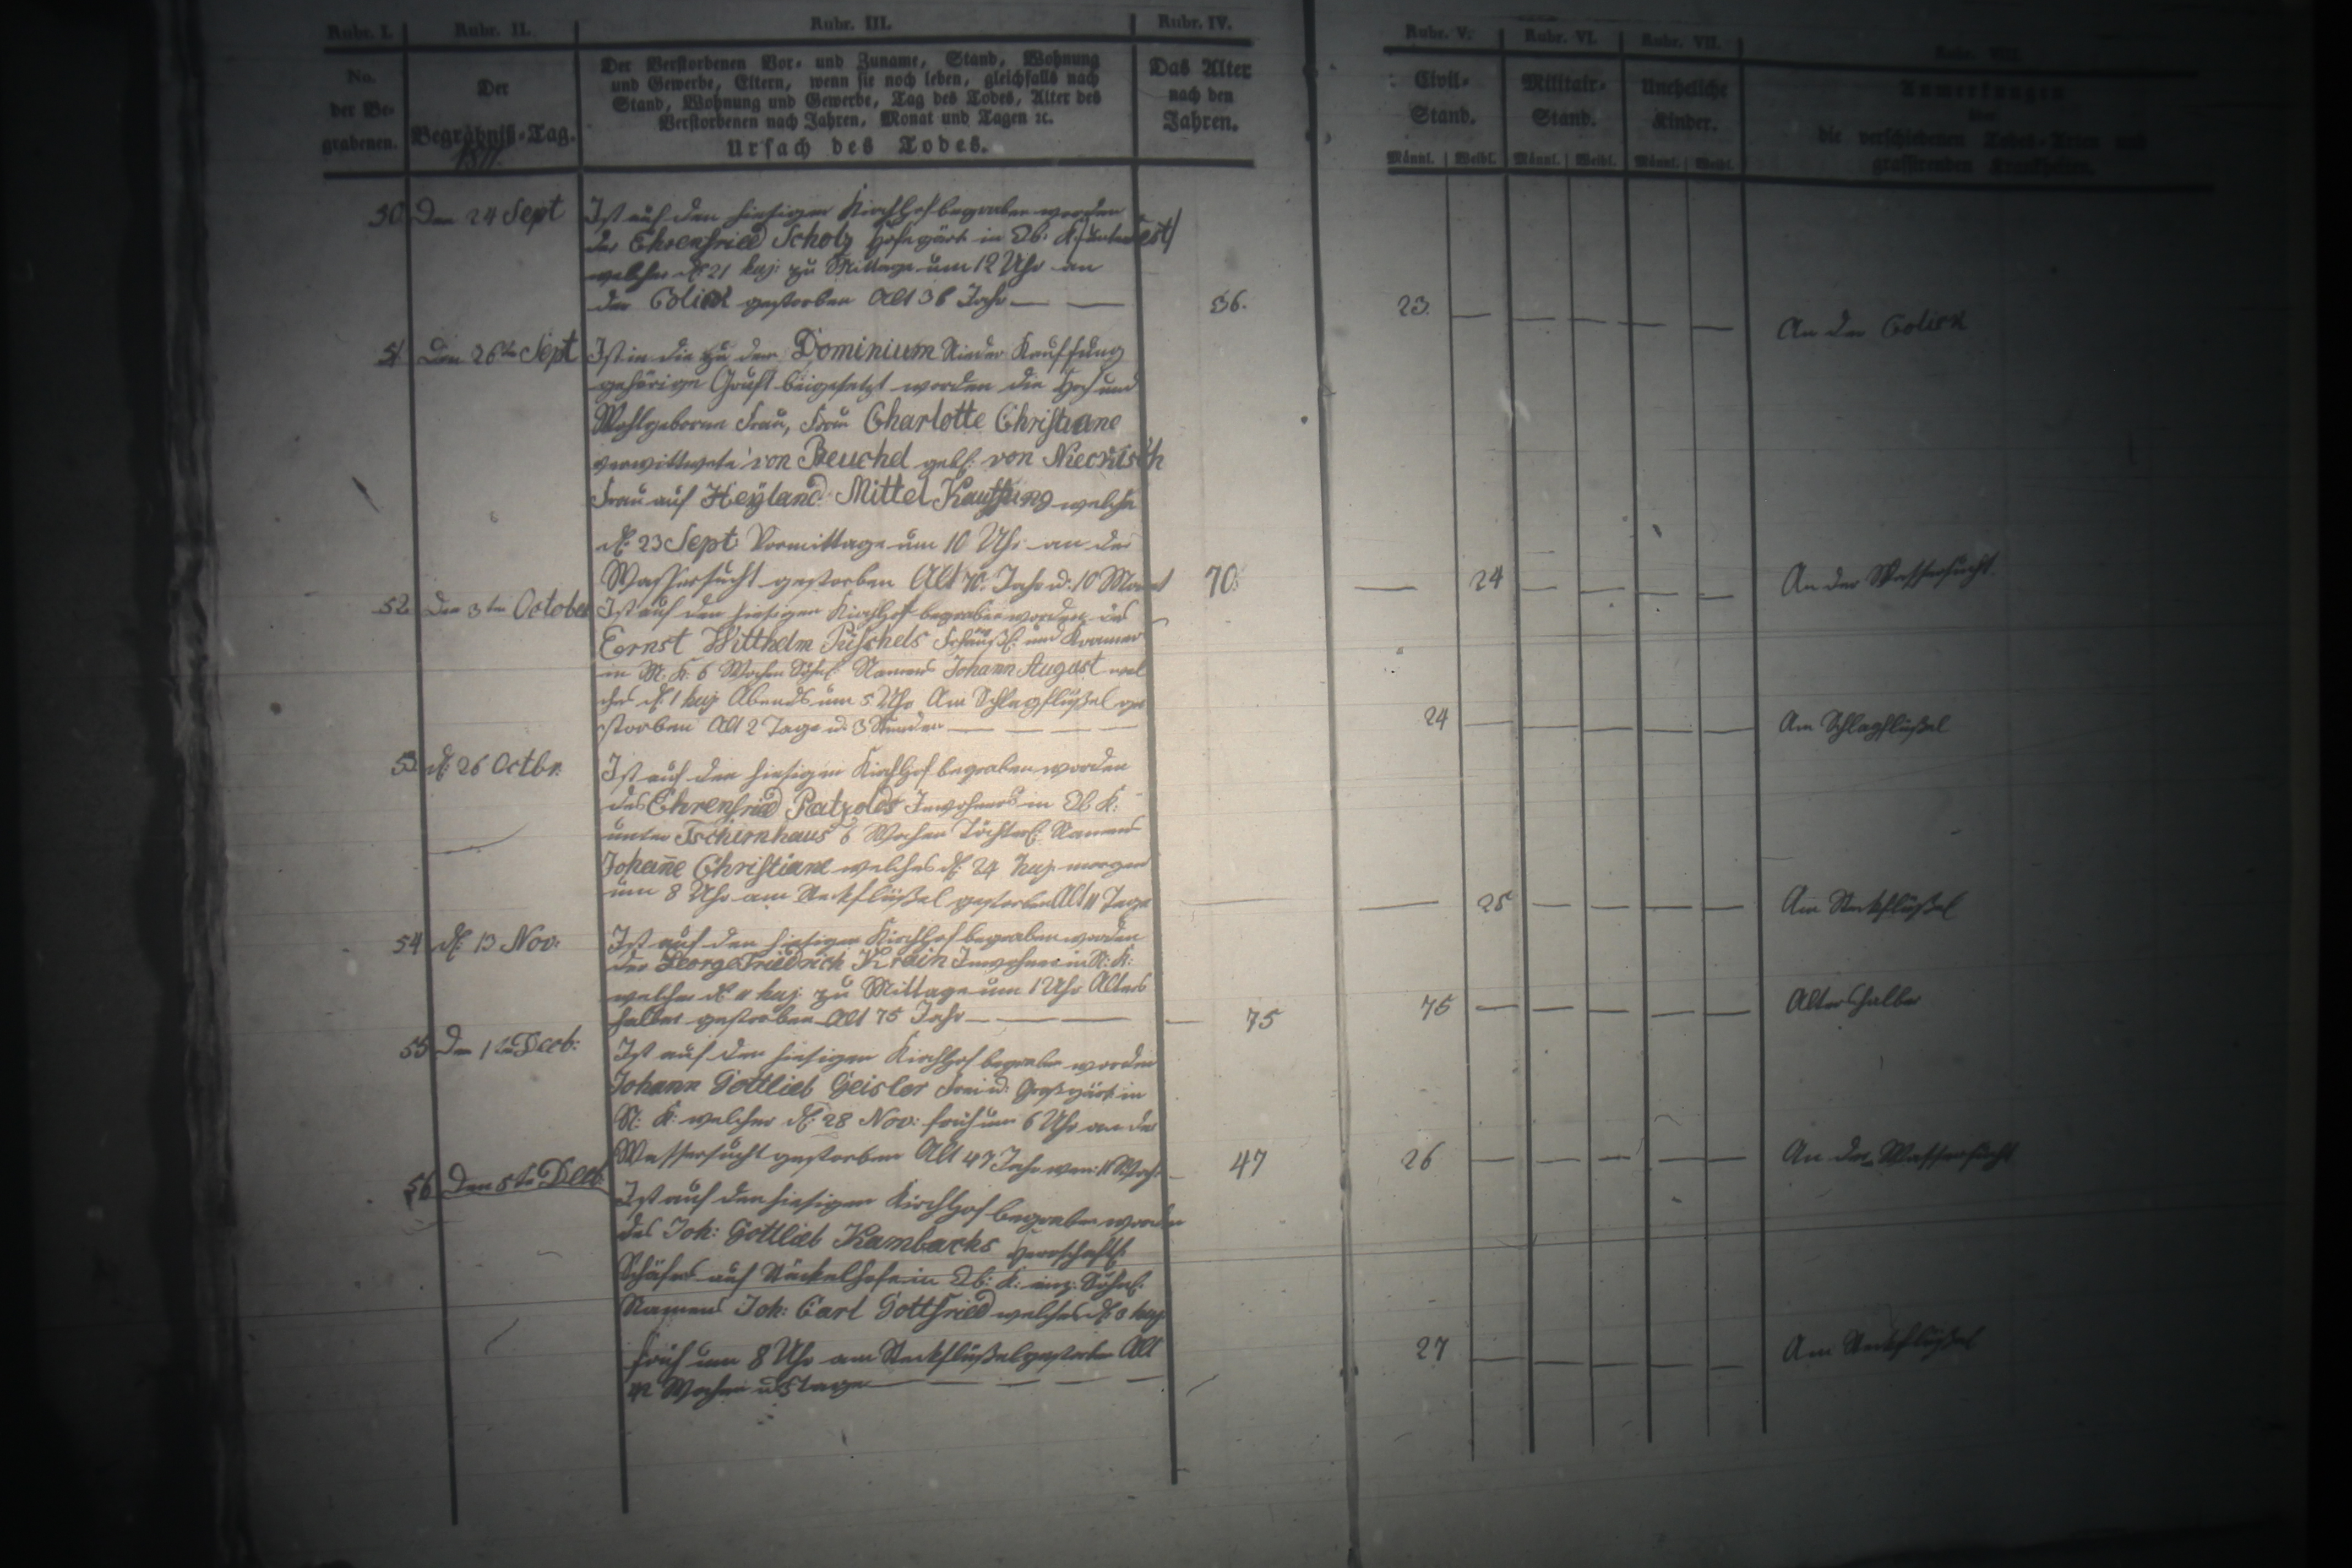 Rubr. I. Rubr. II. Rubr. III. Rubr. IV. Rubr. V. Rubr. VI. Rubr. VII. Rubr. VIII.
No. der Begrabenen.
Der Begräbniß-Tag.
1811.
Der Verstorbenen Vor- und Zuname, Stand, Wohnung
und Gewerbe, Eltern, wenn sie noch leben, gleichfalls nach
Stand, Wohnung und Gewerbe, Tag des Todes, Alter des
Verstorbenen nach Jahren, Monat und Tagen ꝛc.
Ursach des Todes.
Das Alter
nach den
Jahren.
Civil-
Stand.
Männl. Weibl.
Militair-
Stand.
Männl. Weibl.
Uneheliche
Kinder.
Männl. Weibl.
Anmerkungen
über
die verschiedenen Todes-Arten und
grassirenden Krankheiten.
50. Den 24 Sept Ist auf den hiesigen Kirchhof begraben worden
der Ehrenfried Scholz Hofegärt. in Ob. K.
welcher d. 21 huj: zu Mittage um 12 Uhr an
der Colick gestorben Alt 36 Jahr — — 36. 23. — — — — — An der Colick
51 Den 26ten Sept Ist in die zu dem Dominium Nieder Kauffung
gehörige Gruft beigesetzt worden die Hoch und
Wohlgeborne Frau, Frau Charlotte Christiane
verwittwete von Beuchel geb. von Nieckisch
Frau auf Heyland Mittel Kauffung welche
d. 23 Sept: Vormittage um 10 Uhr an der
Wassersucht gestorben Alt 70. Jahr u. 10 Monat 70. — 24 — — — — An der Wassersucht
52 Den 3ten October Ist auf den hiesigen Kirchhof begraben worden des
Ernst Willhelm Püschels und Kramer
in M. K. 6 Wochen Söhnl. Namens Johann August wel
cher d. 1 huj Abends um 5 Uhr Am Schlagflüßel ge
storben Alt 2 Tage u. 3 Stunden — — — — 24 — — — — — Am Schlagflüßel
53 d. 26 Octbr. Ist auf den hiesigen Kirchhof begraben worden
des Ehrenfried Patzolds Inwohners in Ob. K.
unter Tschirnhaus 6 Wochen Töchterl. Namens
Johanne Christiane welches d. 24 huj. morgen
um 8 Uhr am Steckflüßel gestorben Alt 11 Tage — — 25 — — — — Am Steckflüßel
54 d. 13 Nov: Ist auf den hiesigen Kirchhof begraben worden
der George Friedrich Krain Inwohner in N. K.
welcher d. 11 huj. zu Mittage um 1 Uhr Alters
halber gestorben Alt 75 Jahr — — — 75 75 — — — — — Altershalber
55 Den 1ten Decb: Ist auf den hiesigen Kirchhof begraben worden
Johann Gottlieb Geisler Frei u. Großgärt. in
N: K: welcher d. 28 Nov: früh um 6 Uhr an der
Wassersucht gestorben Alt 47 Jahr wen: 11 Woch. 47 26 — — — — — An der Wassersucht
56 Den 5ten Decb. Ist auf den hiesigen Kirchhof begraben worden
des Joh: Gottlieb Kambachs herrschaftl.
Schäfers auf Stöckelhofe in Ob: K. Söhnl.
Namens Joh: Carl Gottfried welches d. 3 huj
früh um 8 Uhr am Steckflüßel gestorben Alt
Wochen u. 5 Tage — — — — 27 — — — — — Am Steckflüßel